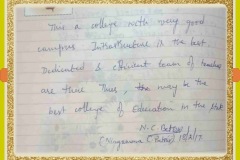 This a college with very good
campus Infrastructure is the best
Dedicated & efficient team of teaches
are there Thus, the way be the
best college of Education in the
N.C
15/2/17